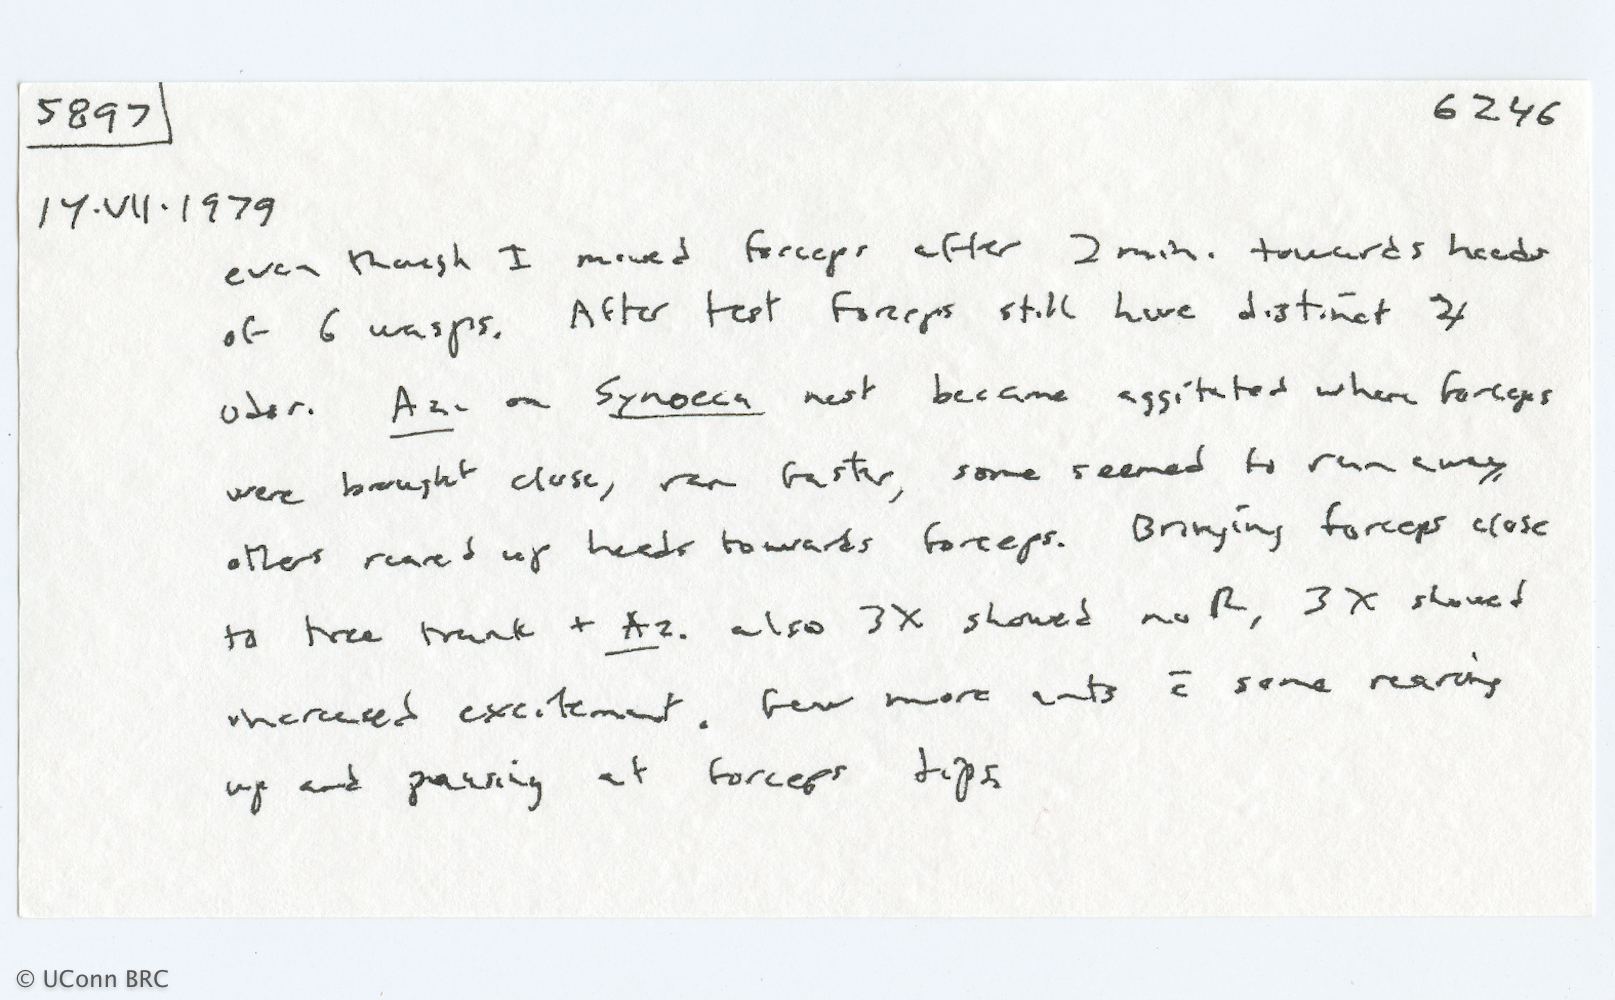 5897
6246
14.VII.1979
even though I moved forceps after 2 min. towards heads
of 6 wasps. After test forceps still have distinct
odor. Az. on Synoeca nest became aggitated where forceps
were brought close, ran faster, some seemed to run away,
others reared up heads towards forceps. Bringing forceps close
to tree trunk + Az. also 3X showed no R, 3X showed
increased excitement. Few more ants c̄ some rearing
up and pausing at forceps tips
© UConn BRC